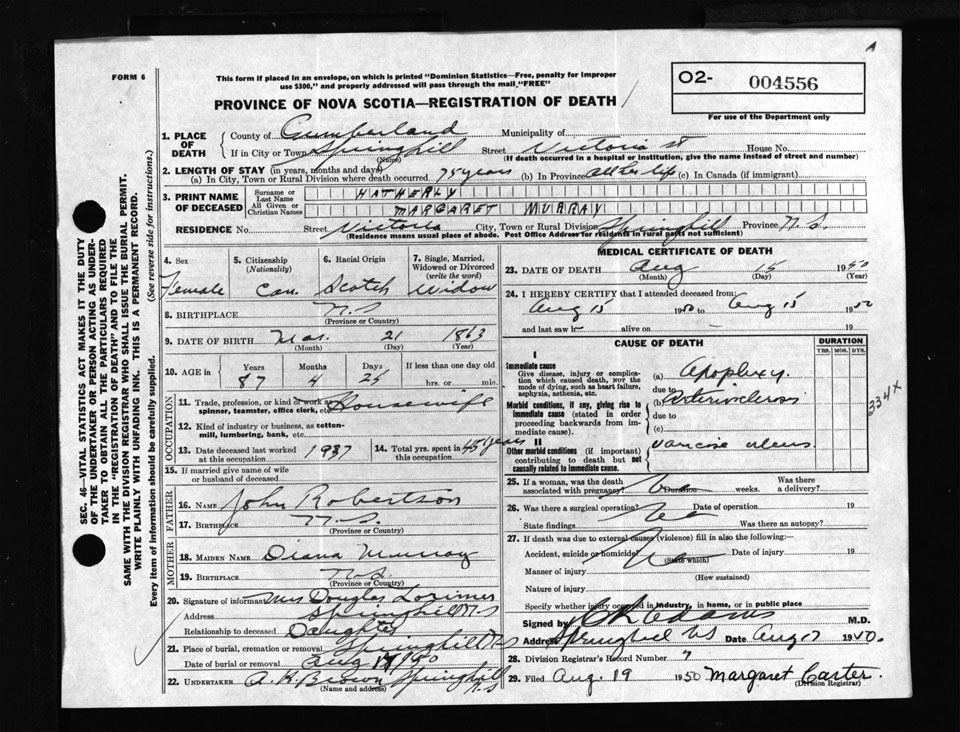 FORM 6
This form if placed in an envelope, on which is printed "Dominion Statistics—Free, penalty for improper
use $300," and properly addressed will pass through the mail "FREE"
PROVINCE OF NOVA SCOTIA—REGISTRATION OF DEATH
O2- 004556
For use of the Department only
SEC. 46—VITAL STATISTICS ACT MAKES IT THE DUTY
OF THE UNDERTAKER OR PERSON ACTING AS UNDER-
TAKER TO OBTAIN ALL THE PARTICULARS REQUIRED
IN THE "REGISTRATION OF DEATH" AND TO FILE THE
SAME WITH THE DIVISION REGISTRAR WHO SHALL ISSUE THE BURIAL PERMIT.
WRITE PLAINLY WITH UNFADING INK. THIS IS A PERMANENT RECORD.
Every item of information should be carefully supplied. (See reverse side for instructions.)
1. PLACE OF DEATH
County of Cumberland Municipality of
If in City or Town Springhill Street Victoria St House No.
(Name) (If death occurred in a hospital or institution, give the name instead of street and number)
2. LENGTH OF STAY (in years, months and days)
(a) In City, Town or Rural Division where death occurred 75 years (b) In Province all her life (c) In Canada (if immigrant)
3. PRINT NAME OF DECEASED
Surname or Last Name HATHERLY
All Given or Christian Names MARGARET MURRAY
RESIDENCE No. Street Victoria City, Town or Rural Division Springhill Province N.S.
(Residence means usual place of abode. Post Office Address for residents in rural parts not sufficient)
4. Sex Female
5. Citizenship (Nationality) Can.
6. Racial Origin Scotch
7. Single, Married, Widowed or Divorced (write the word) Widow
8. BIRTHPLACE N.S.
(Province or Country)
9. DATE OF BIRTH Mar. 21 1863
(Month) (Day) (Year)
10. AGE in Years 87 Months 4 Days 25 If less than one day old hrs. or min.
OCCUPATION
11. Trade, profession, or kind of work as spinner, teamster, office clerk, etc. Housewife
12. Kind of industry or business, as cotton-mill, lumbering, bank, etc.
13. Date deceased last worked at this occupation 1937
14. Total yrs. spent in this occupation 45 years
15. If married give name of wife or husband of deceased
FATHER
16. Name John Robertson
17. Birthplace N.S.
(Province or Country)
MOTHER
18. Maiden Name Diana Murray
19. Birthplace N.S.
(Province or Country)
20. Signature of informant Mrs Douglas Lorimer
Address Springhill N.S
Relationship to deceased Daughter
21. Place of burial, cremation or removal Springhill N.S
Date of burial or removal Aug 17 1950
22. UNDERTAKER A. H. Brown Springhill N.S
(Name and address)
MEDICAL CERTIFICATE OF DEATH
23. DATE OF DEATH Aug 15 1950
(Month) (Day) (Year)
24. I HEREBY CERTIFY that I attended deceased from:
Aug 15 1950 to Aug 15 1950
and last saw h alive on 19
CAUSE OF DEATH
DURATION
YRS. MOS. DYS.
I
Immediate cause
Give disease, injury or complication which caused death, NOT the mode of dying, such as heart failure, asphyxia, asthenia, etc.
(a) Apoplexy.
due to
Morbid conditions, if any, giving rise to immediate cause (stated in order proceeding backwards from immediate cause).
(b) Arteriosclerosis
due to
(c)
334X
II
Other morbid conditions (if important) contributing to death but not causally related to immediate cause.
Varicose ulcers.
25. If a woman, was the death associated with pregnancy? No Duration weeks. Was there a delivery?
26. Was there a surgical operation? No Date of operation 19
State findings Was there an autopsy?
27. If death was due to external causes (violence) fill in also the following:
Accident, suicide or homicide? Date of injury 19
(State which)
Manner of injury
(How sustained)
Nature of injury
Specify whether injury occurred in industry, in home, or in public place
Signed by Adams M.D.
Address Springhill NS Date Aug 17
28. Division Registrar's Record Number 7
29. Filed Aug. 19 1950 Margaret Carter.
(Division Registrar)